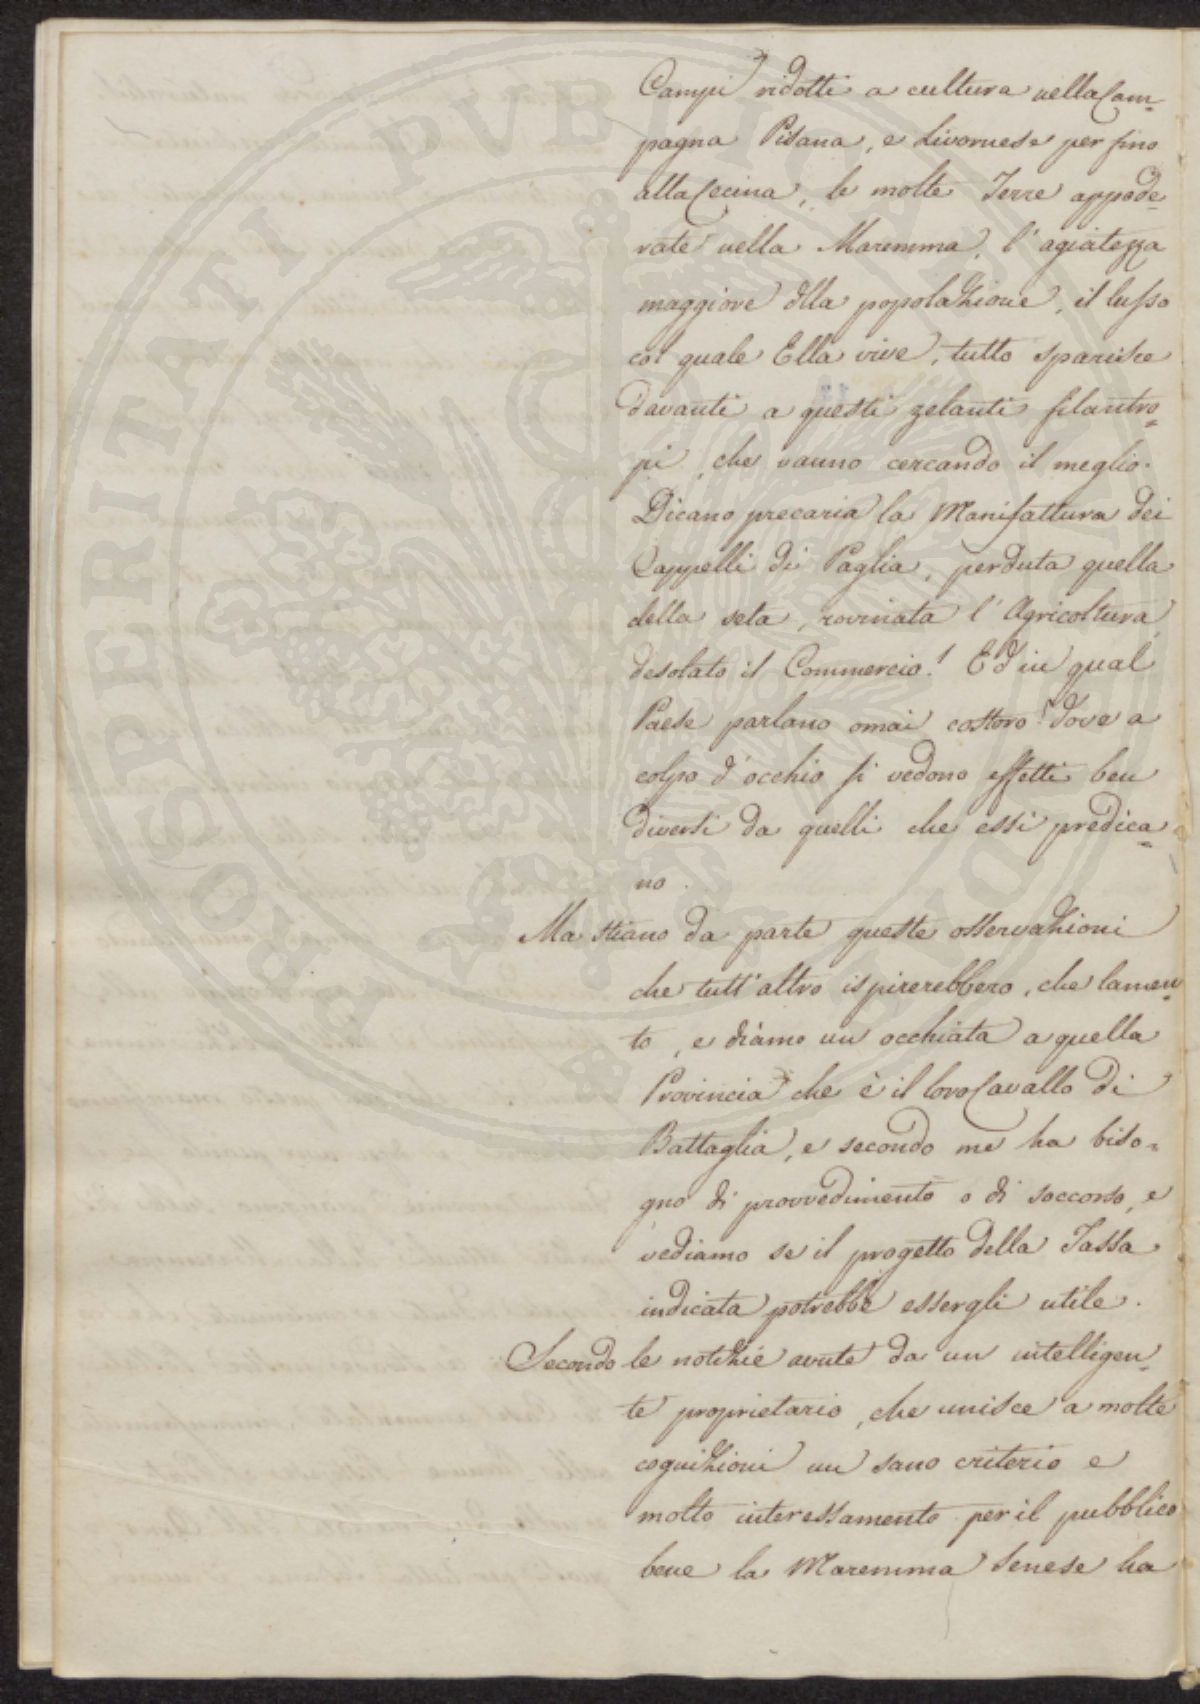 Campi ridotti a cultura nella Cam=
pagna Pisana, e Livornese per fino
alla Cecina, le molte Terre appode=
rate nella Maremma, l'agiatezza
maggiore dlla popolazione, il lusso
col quale Ella vive, tutto sparisce
davanti a questi zelanti filantro=
pi, che vanno cercando il meglio.
Dicano precaria la Manifattura dei
Cappelli di Paglia, perduta quella
della seta, rovinata l'Agricoltura,
desolato il Commercio! Ed in qual
Paese parlano omai costoro? dove a
colpo d'occhio si vedono effetti ben
diversi da quelli che essi predica=
no.
Ma stiano da parte queste osservazioni
che tutt'altro ispirerebbero, che lamen=
to, e diamo un occhiata a quella
Provincia che è il loro Cavallo di
Battaglia, e secondo me ha biso=
gno di provvedimento o di soccorso, e
vediamo se il progetto della Tassa
indicata potrebbe essergli utile.
Secondo le notizie avute da un intelligen=
te proprietario, che unisce a molte
cognizioni un sano criterio e
molto interessamento per il pubblico
bene la Maremma Senese ha
PROSPERITATI PVBLICAE